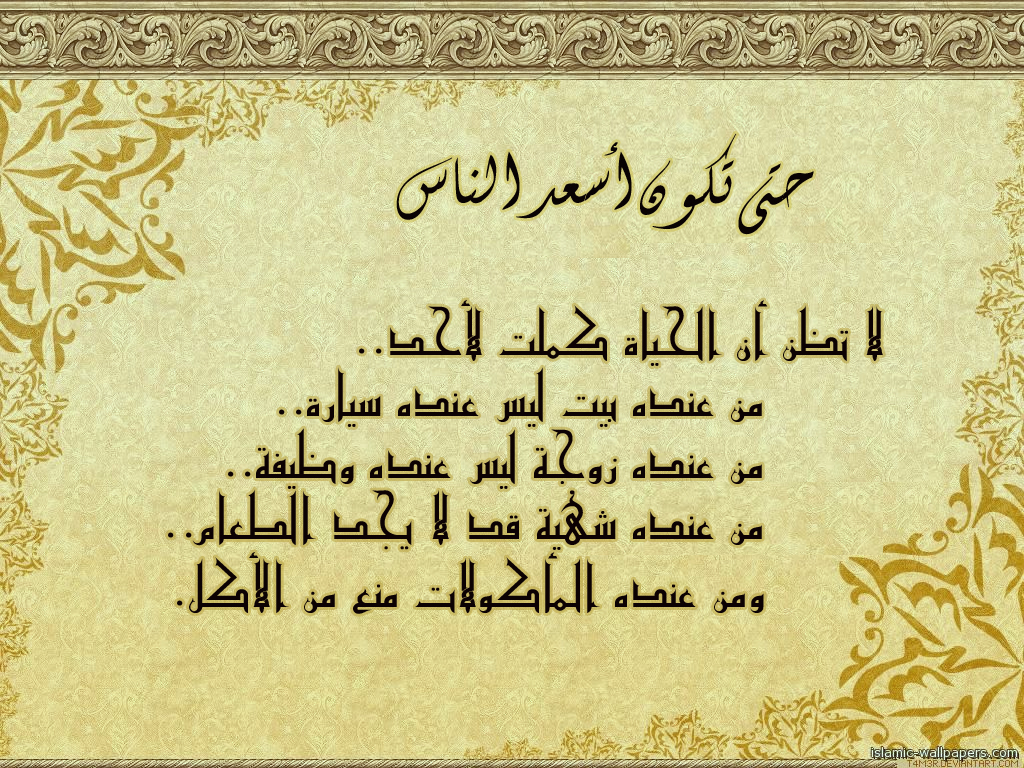 حتى تكون أسعد الناس
لا تظن أن الحياة كملت لأحد..
من عنده بيت ليس عنده سيارة..
من عنده زوجة ليس عنده وظيفة..
من عنده شهية قد لا يجد الطعام..
ومن عنده المأكولات منع من الأكل.
islamic-wallpapers.com
T4M3R.DEVIANTART.COM